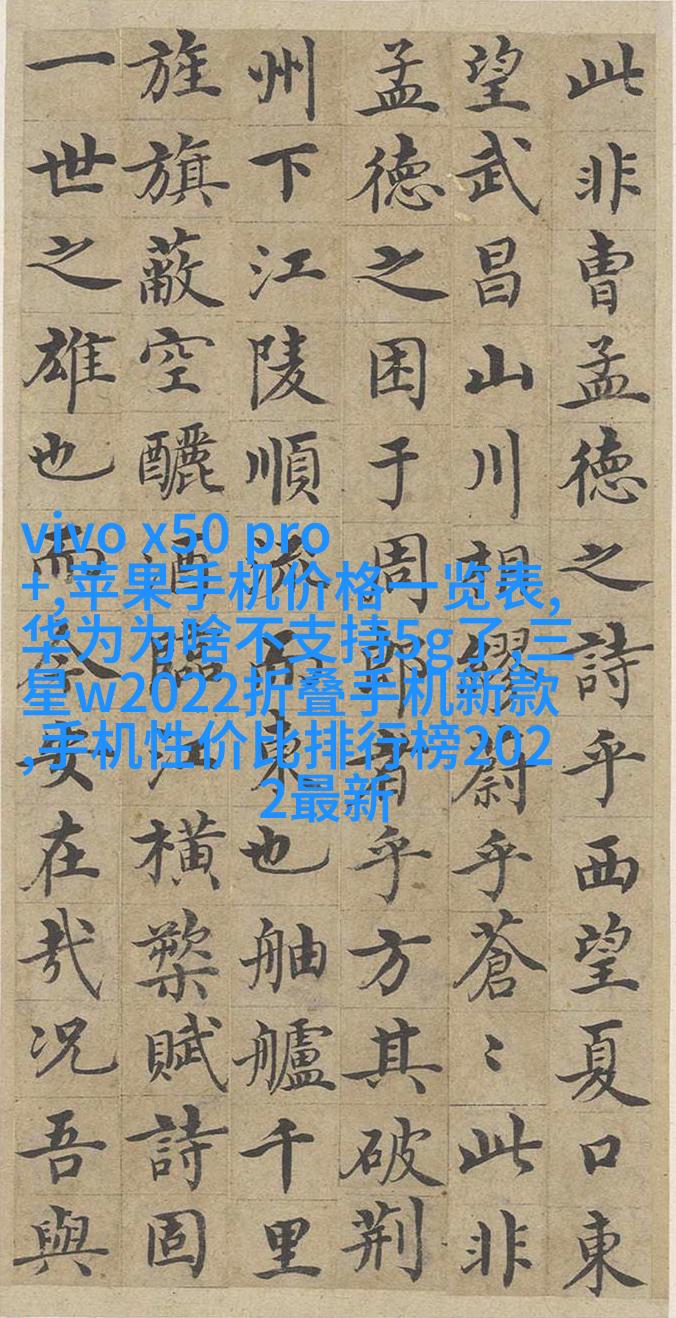 此非曹孟德之詩乎西望夏口東
望武昌山川相繆蔚乎蒼〻此非
孟德之困于周郎者乎方其破荆
州下江陵順流而東也舳艫千里
旌旗蔽空釃酒臨江橫槊賦詩固
一世之雄也而今安在哉況吾與
vivo x50 pro
+,苹果手机价格一览表,
华为为啥不支持5g了,三
星w2022折叠手机新款
,手机性价比排行榜202
2最新